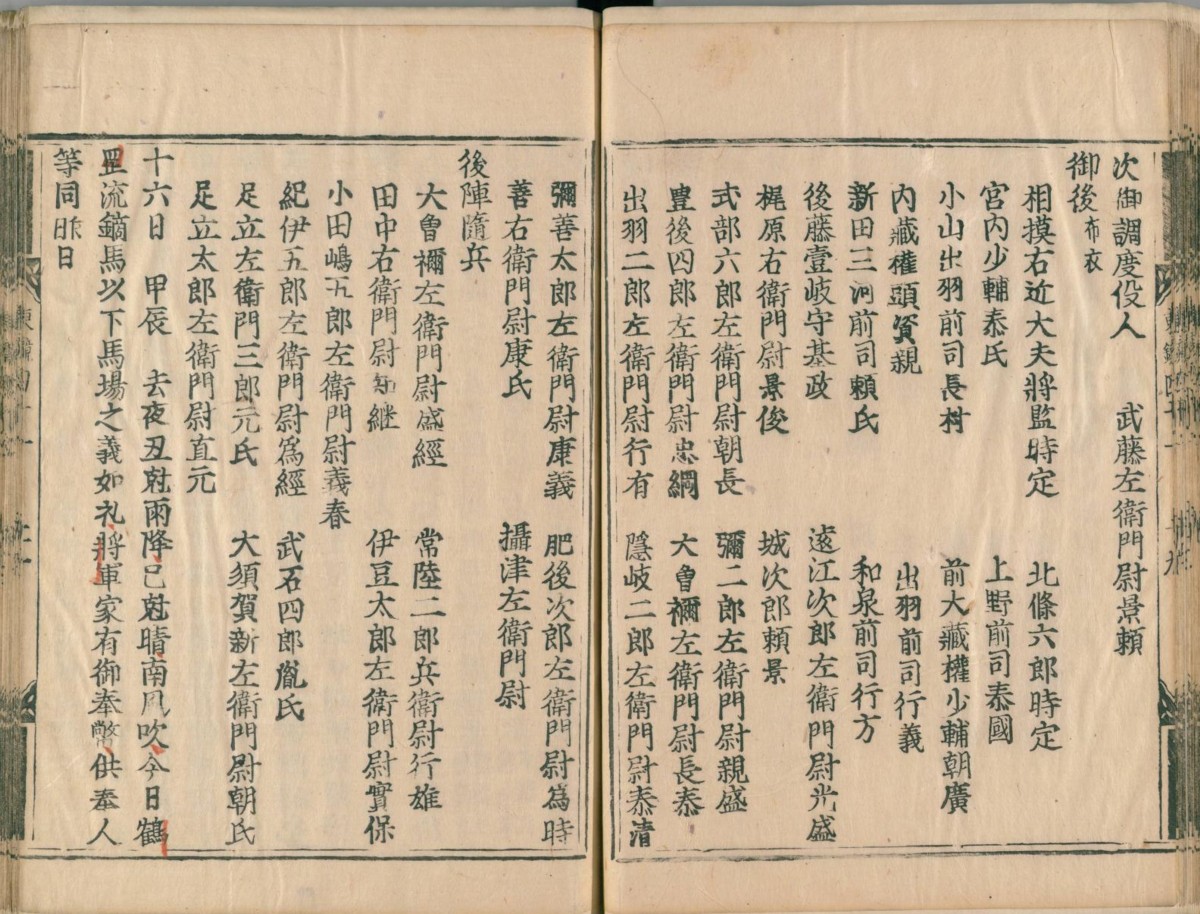 次御調度役人 武藤左衛門尉景頼
御後布衣
相摸右近大夫將監時定 北條六郎時定
宮内少輔泰氏 上野前司泰國
小山出羽前司長村 前大藏權少輔朝廣
内藏權頭資親 出羽前司行義
新田三河前司頼氏 和泉前司行方
後藤壹岐守基政 遠江次郎左衛門尉光盛
梶原右衛門尉景俊 城次郎頼景
式部六郎左衛門尉朝長 彌二郎左衛門尉親盛
豊後四郎左衛門尉忠綱 大曾禰左衛門尉長泰
出羽二郎左衛門尉行有 隱岐二郎左衛門尉泰清
彌善太郎左衛門尉康義 肥後次郎左衛門尉為時
善右衛門尉康氏 攝津左衛門尉
後陣隨兵
大曾禰左衛門尉盛經 常陸二郎兵衛尉行雄
田中右衛門尉知継 伊豆太郎左衛門尉實保
小田嶋五郎左衛門尉義春
紀伊五郎左衛門尉為經 武石四郎胤氏
足立左衛門三郎元氏 大須賀新左衛門尉朝氏
足立太郎左衛門尉直元
十六日 甲辰 去夜丑尅雨降巳尅晴南風吹今日鶴
罡流鏑馬以下馬場之義如礼將軍家有御奉幣供奉人
等同昨日